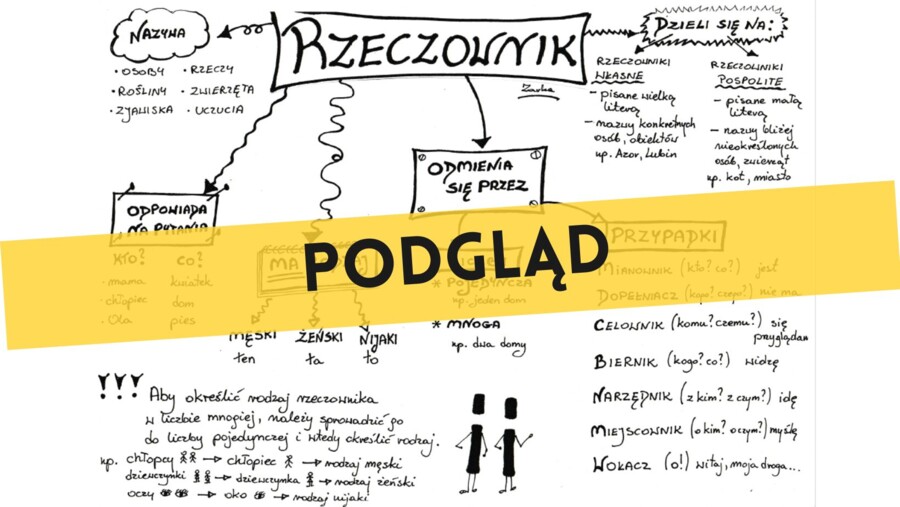 RZECZOWNIK
NAZYWA
• OSOBY • RZECZY
• ROŚLINY • ZWIERZĘTA
• ZJAWISKA • UCZUCIA
DZIELI SIĘ NA:
RZECZOWNIKI
WŁASNE
– pisane wielką
literą
– nazwy konkretnych
osób, obiektów
np. Azor, Lubin
RZECZOWNIKI
POSPOLITE
– pisane małą
literą
– nazwy bliżej
nieokreślonych
osób, zwierząt
np. kot, miasto
ODPOWIADA
NA PYTANIA
KTO? CO?
· mama kwiatek
· chłopiec dom
· Ola pies
MA
MĘSKI ŻEŃSKI NIJAKI
ten ta to
ODMIENIA
SIĘ PRZEZ
* POJEDYNCZA
np. jeden dom
* MNOGA
np. dwa domy
PRZYPADKI
MIANOWNIK (kto? co?) jest
DOPEŁNIACZ (kogo? czego?) nie ma
CELOWNIK (komu? czemu?) się
przyglądam
BIERNIK (kogo? co?) widzę
NARZĘDNIK (z kim? z czym?) idę
MIEJSCOWNIK (o kim? o czym?) myślę
WOŁACZ (o!) witaj, moja droga...
PODGLĄD
!!! Aby określić rodzaj rzeczownika
w liczbie mnogiej, należy sprowadzić go
do liczby pojedynczej i wtedy określić rodzaj.
np. chłopcy → chłopiec → rodzaj męski
dziewczynki → dziewczynka → rodzaj żeński
oczy → oko → rodzaj nijaki